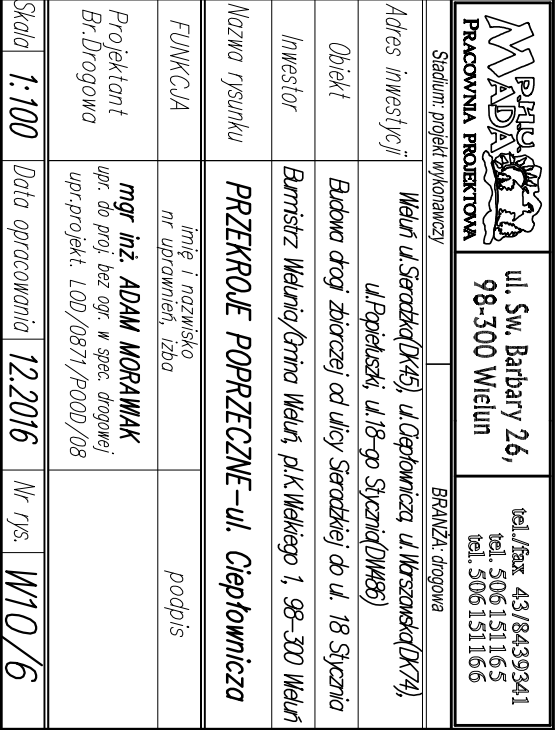 P.H.U.
MADA
PRACOWNIA PROJEKTOWA
ul. Sw. Barbary 26,
98-300 Wielun
tel./fax 43/8439341
tel. 506151165
tel. 506151166
Stadium: projekt wykonawczy
BRANŻA: drogowa
Adres inwestycji
Wieluń ul.Sieradzka(DK45), ul.Ciepłownicza, ul.Warszawska(DK74),
ul.Popiełuszki, ul.18-go Stycznia(DW486)
Obiekt
Budowa drogi zbiorczej od ulicy Sieradzkiej do ul. 18 Stycznia
Inwestor
Burmistrz Wielunia/Gmina Wieluń, pl.K.Wielkiego 1, 98-300 Wieluń
Nazwa rysunku
PRZEKROJE POPRZECZNE-ul. Ciepłownicza
FUNKCJA
imię i nazwisko
nr uprawnień, izba
podpis
Projektant
Br.Drogowa
mgr inż. ADAM MORAWIAK
upr. do proj. bez ogr. w spec. drogowej
upr.projekt. LOD/0871/POOD/08
Skala
1:100
Data opracowania
12.2016
Nr rys.
W10/6